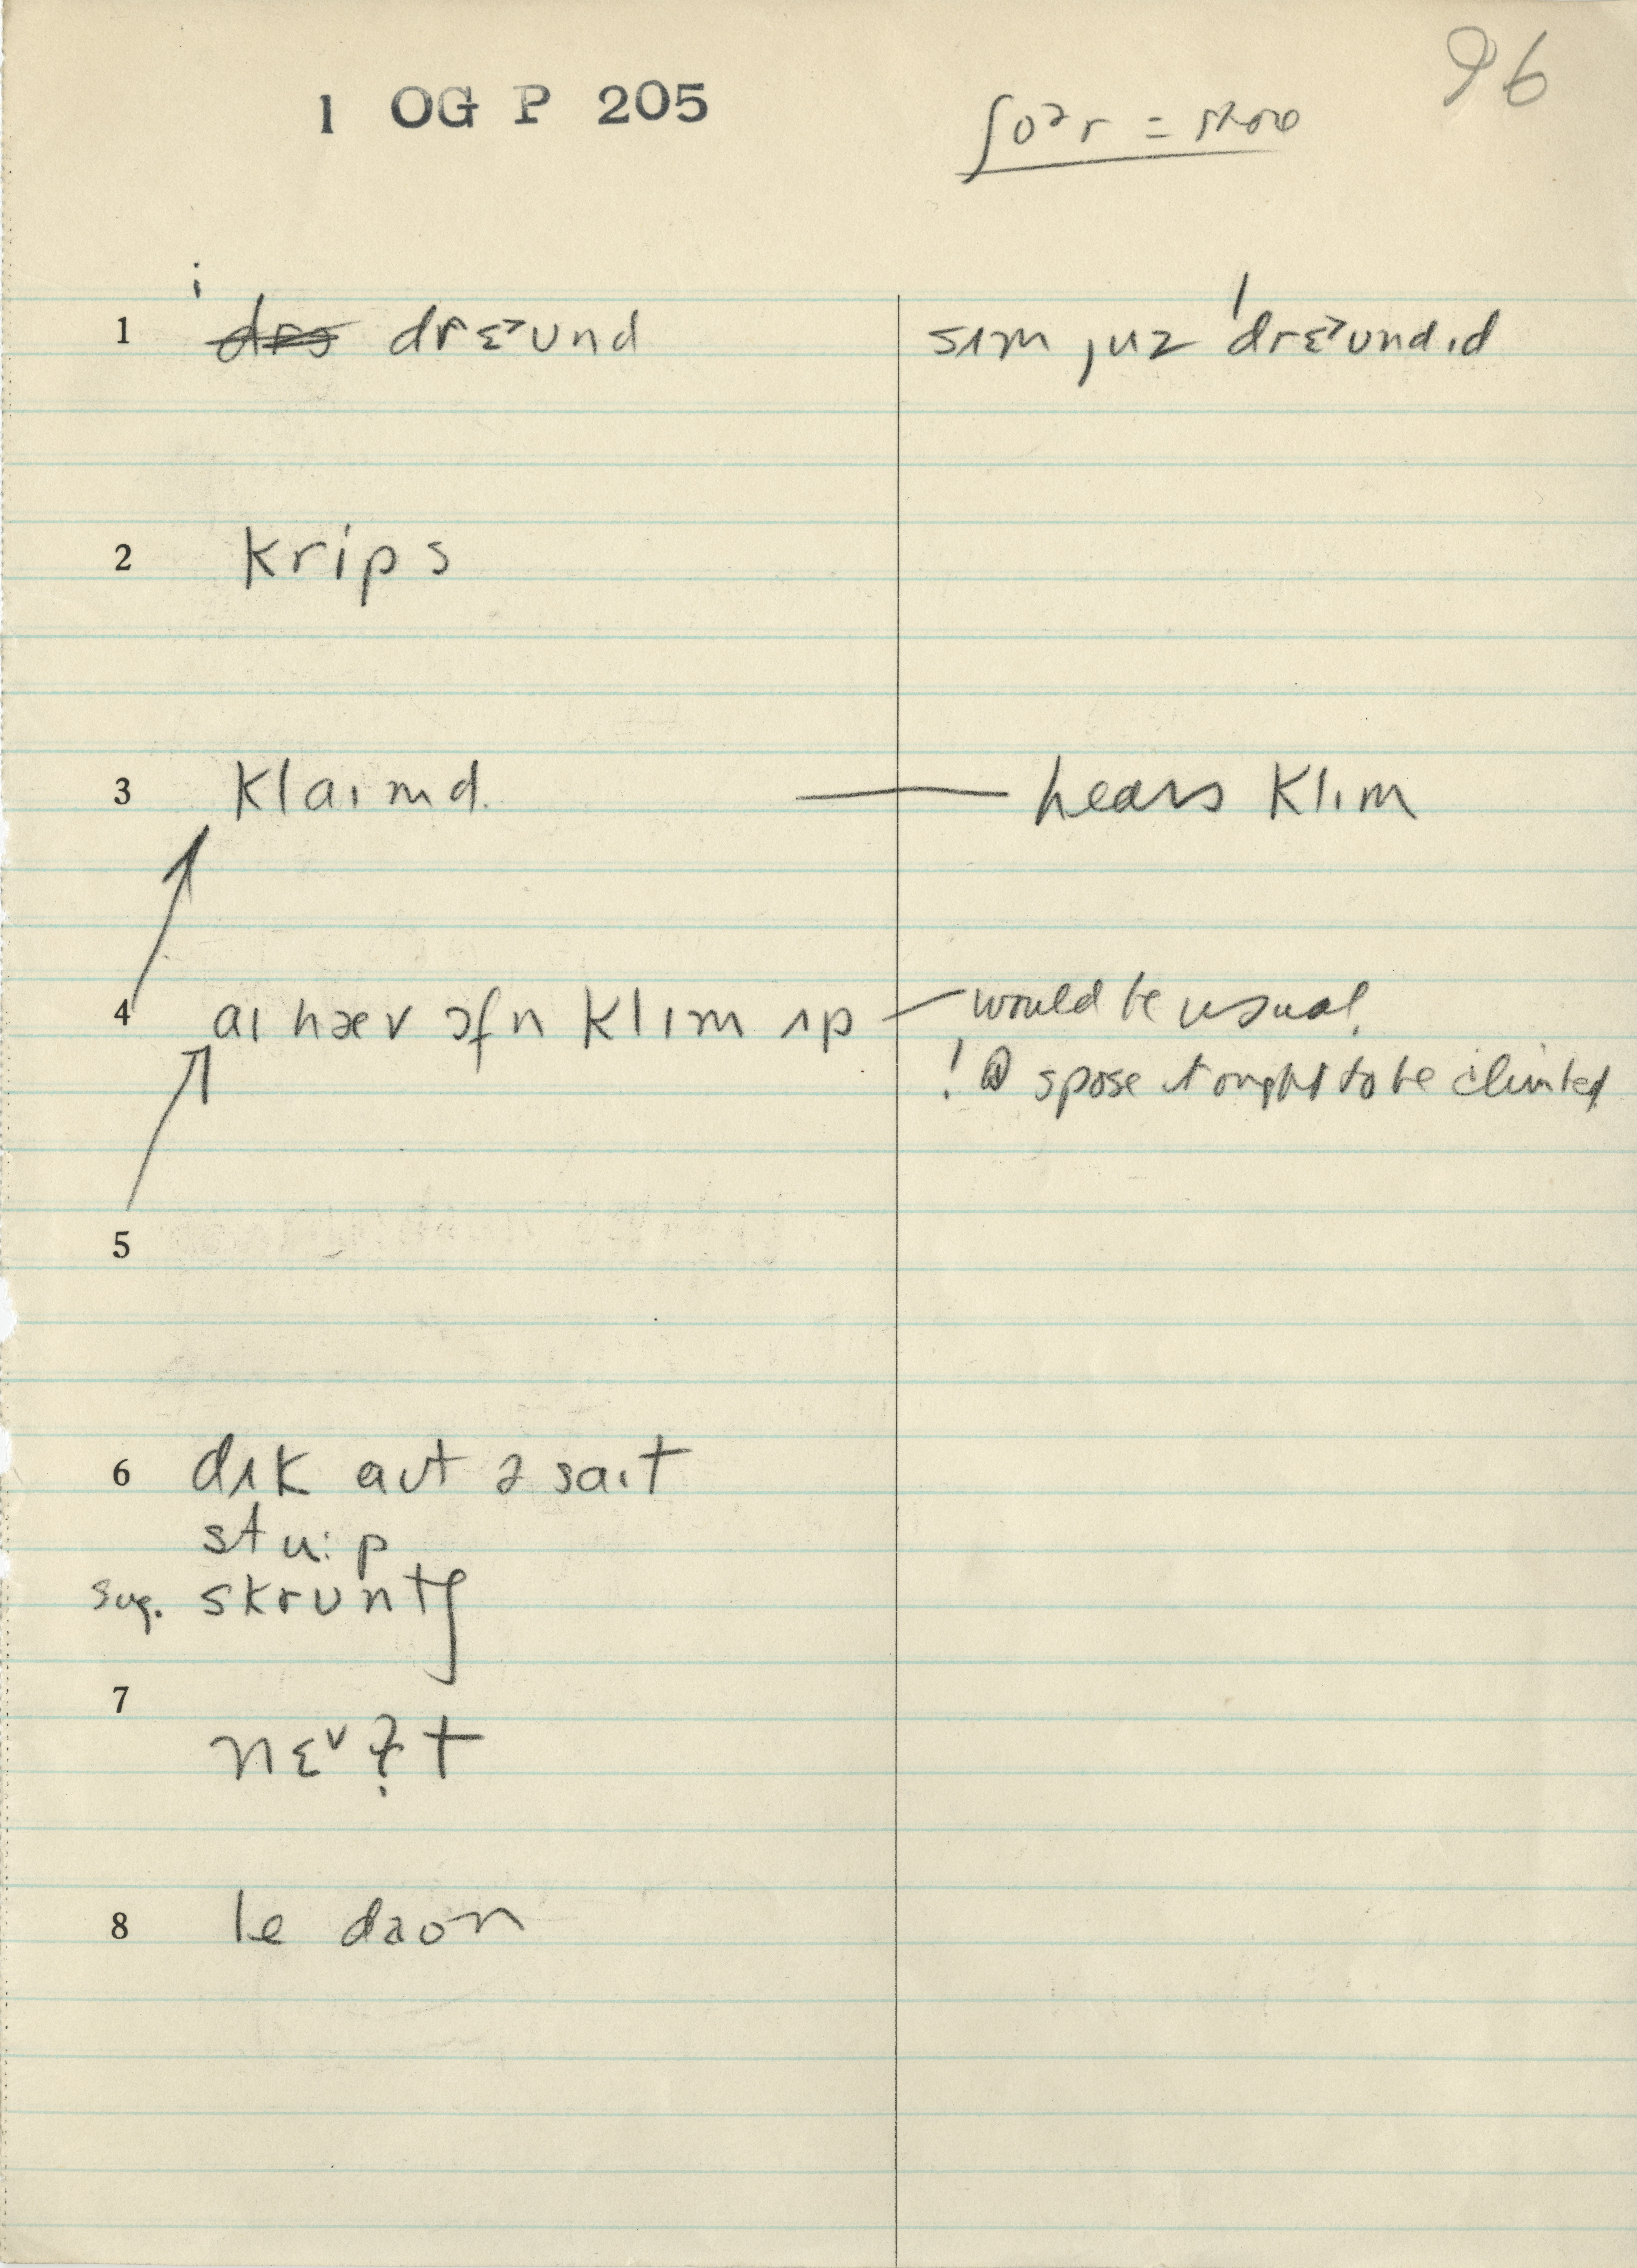 96
1 OG P 205
ʃoᵊr = shore
1 drɛᵊʊnd
sʌm juz ˈdrɛᵊʊndɪd
2 krips
3 klaɪmd — hears klɪm
4 aɪ hæv ɔfn klɪm ʌp — would be usual
! spose it ought to be climbed
5
6 dʌk aʊt ə saɪt
stu:p
sug. skrʊntʃ
7
nɛᵛ t
8 le daʊn